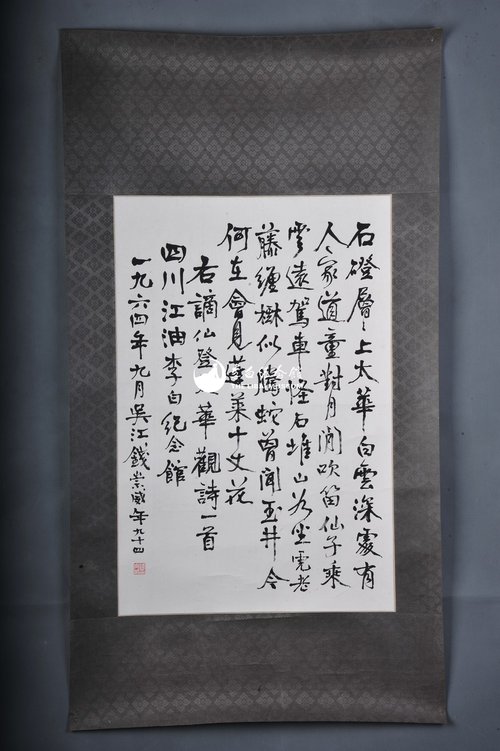 石磴層〻上太華白雲深處有
人家道童對月閒吹笛仙子乘
雲遠駕車怪石堆山如坐虎老
藤纏樹似騰蛇曾聞玉井今
何在會見蓬萊十丈花
右謫仙登太華觀詩一首
四川江油李白紀念館
一九六四年九月吳江錢崇威年九十四